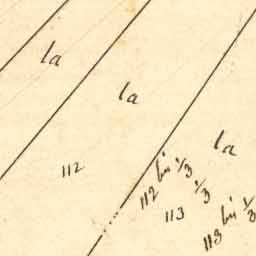 la
la
la
112
112 bis 1/3
113 1/3
113 bis 1/3